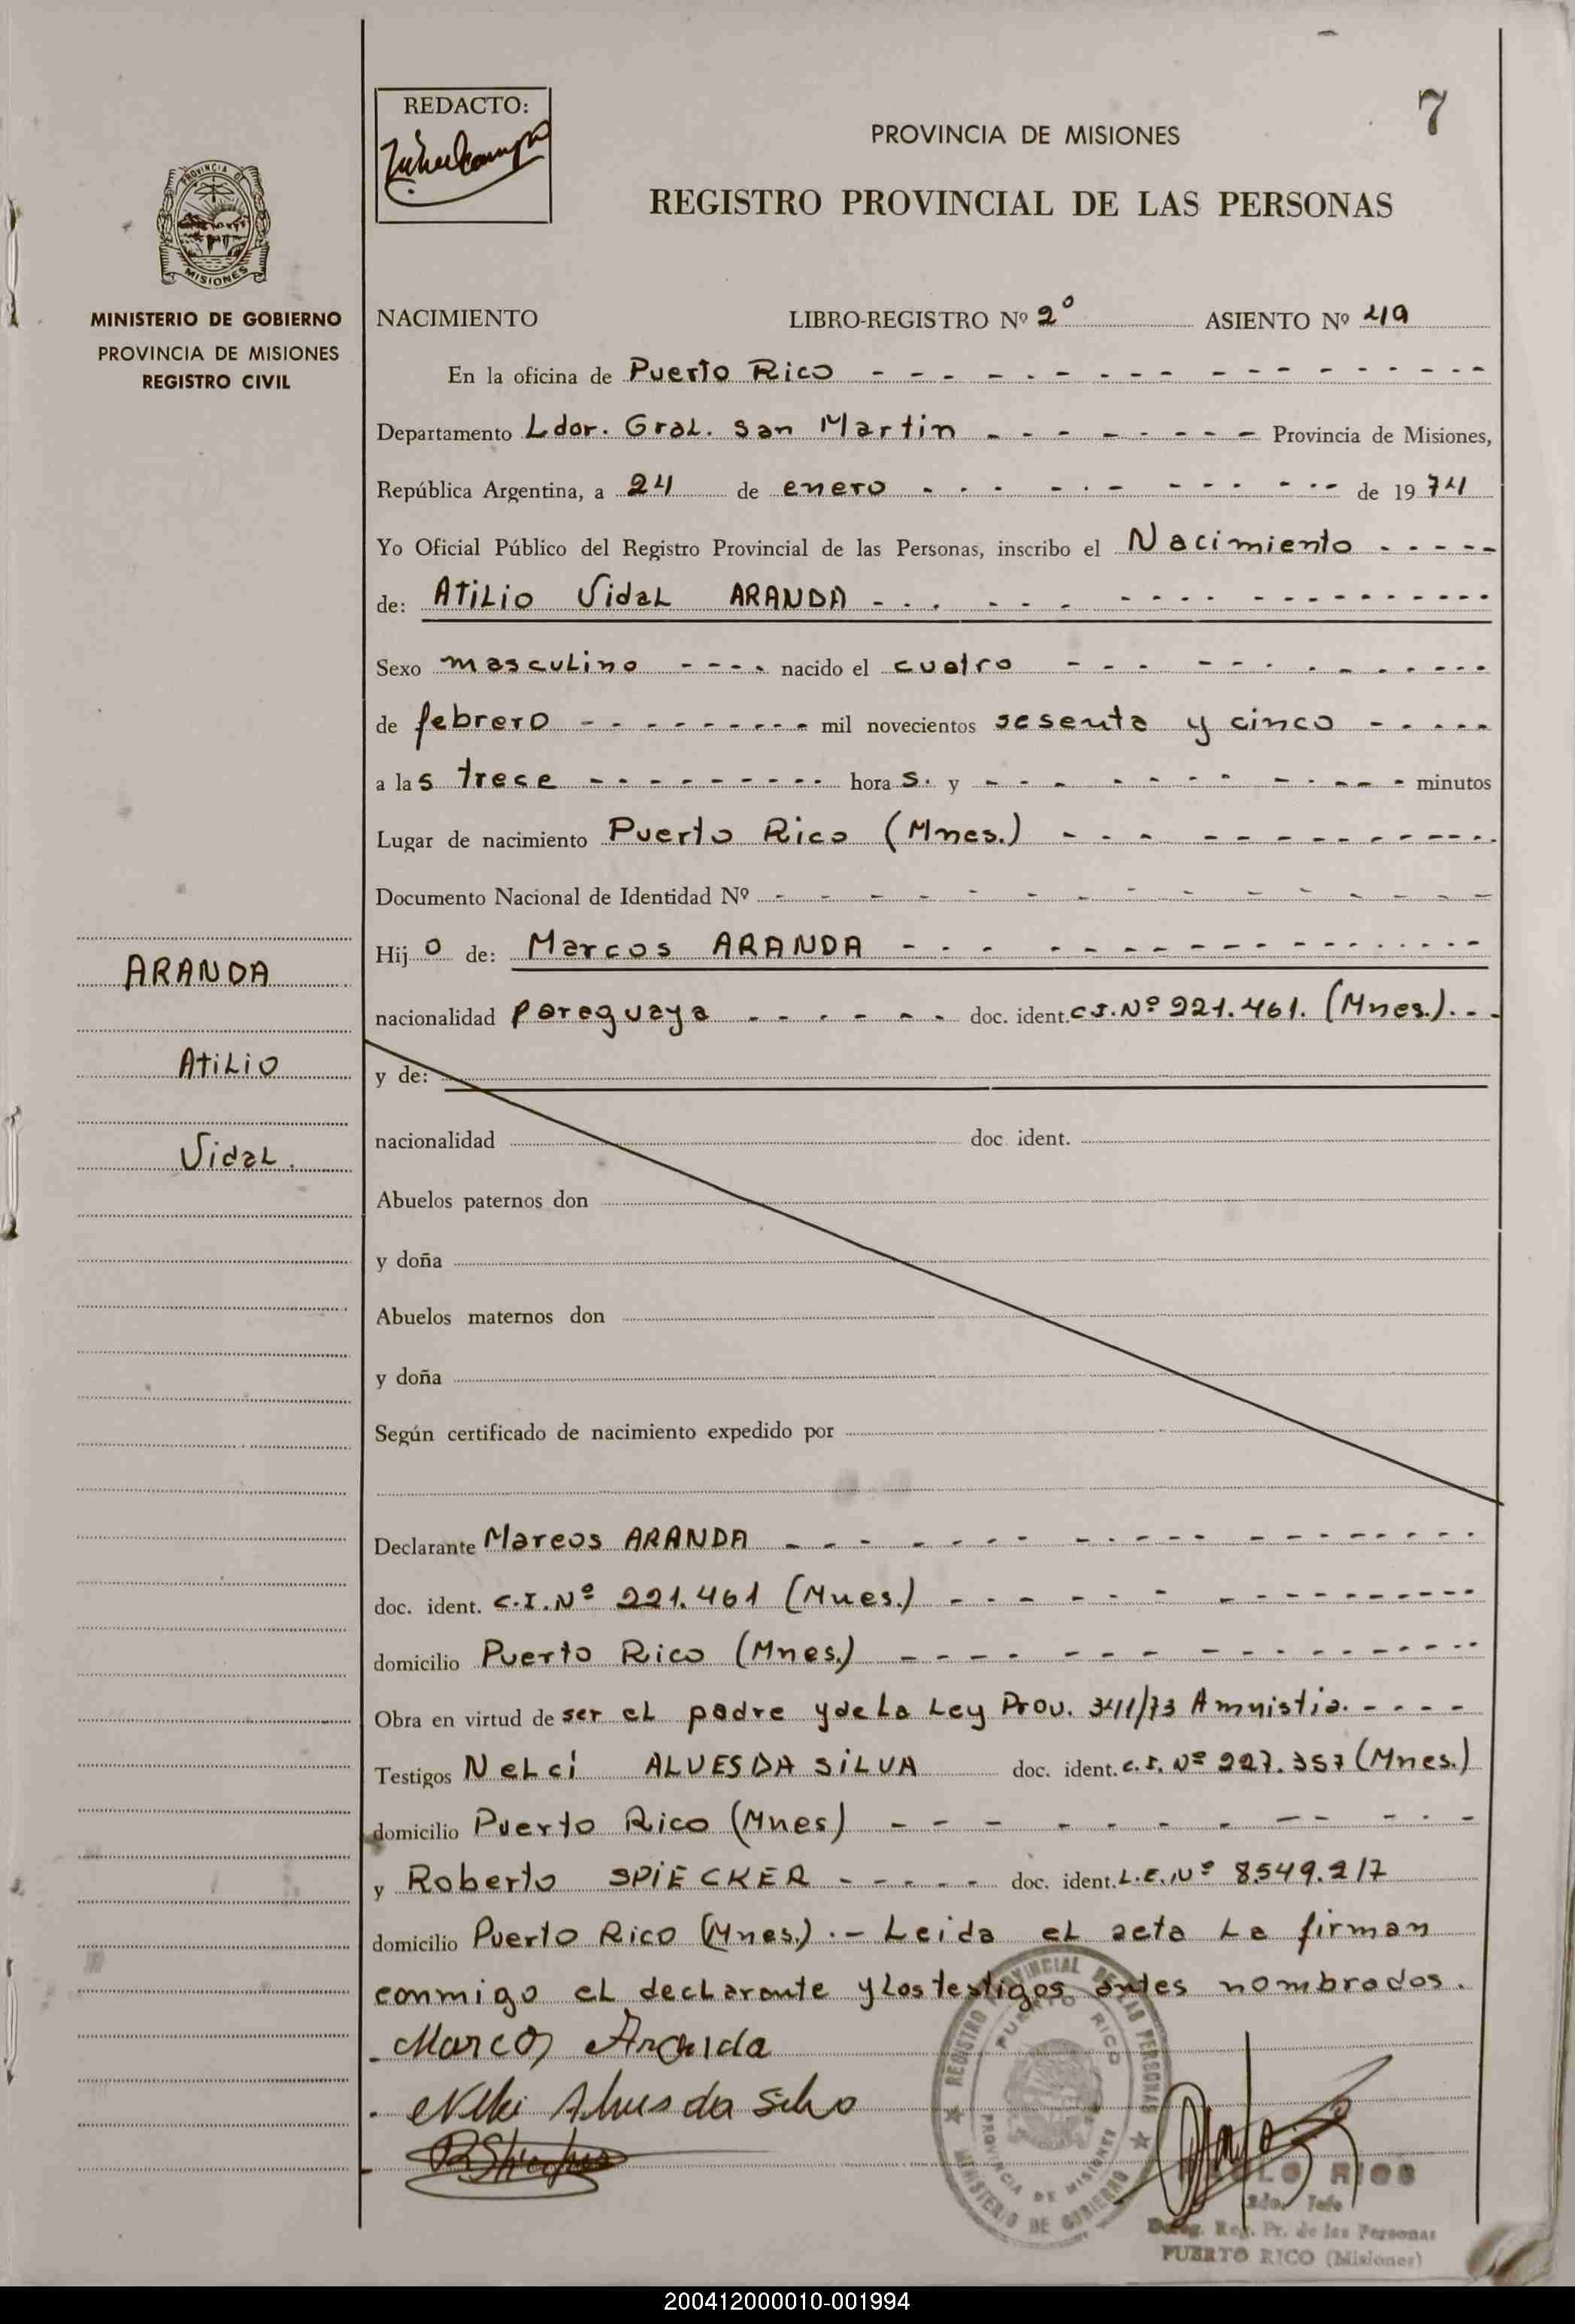 7
REDACTO:
PROVINCIA DE MISIONES
REGISTRO PROVINCIAL DE LAS PERSONAS
PROVINCIA DE
MISIONES
MINISTERIO DE GOBIERNO
PROVINCIA DE MISIONES
REGISTRO CIVIL
ARANDA
Atilio
Vidal.
NACIMIENTO LIBRO-REGISTRO Nº 2º ASIENTO Nº 419
En la oficina de Puerto Rico - - - - - - - - - - - - - - - - -
Departamento Ldor. Gral. San Martin - - - - - - - - - Provincia de Misiones,
República Argentina, a 24 de enero - - - - - - - - - - - - - de 1974
Yo Oficial Público del Registro Provincial de las Personas, inscribo el Nacimiento - - - - -
de: Atilio Vidal ARANDA - - - - - - - - - - - - - - - - - - -
Sexo masculino - - - - nacido el cuatro - - - - - - - - - - - - -
de febrero - - - - - - - - - mil novecientos sesenta y cinco - - - - -
a las trece - - - - - - - - - horas. y - - - - - - - - - - - - minutos
Lugar de nacimiento Puerto Rico (Mnes.) - - - - - - - - - - - -
Documento Nacional de Identidad Nº - - - - - - - - - - - - - -
Hijo de: Marcos ARANDA - - - - - - - - - - - - - - - - -
nacionalidad paraguaya - - - - - - doc. ident. C.I. Nº 221.461. (Mnes.). - -
y de:
nacionalidad doc ident.
Abuelos paternos don
y doña
Abuelos maternos don
y doña
Según certificado de nacimiento expedido por
Declarante Marcos ARANDA - - - - - - - - - - - - - - - - -
doc. ident. C.I. Nº 221.461 (Mnes.) - - - - - - - - - - - - - - -
domicilio Puerto Rico (Mnes.) - - - - - - - - - - - - - - -
Obra en virtud de ser el padre y de La Ley Prov. 341/73 Amnistia. - - - -
Testigos Nelci ALVES DA SILVA doc. ident. C.I. Nº 227.357 (Mnes.)
domicilio Puerto Rico (Mnes) - - - - - - - - - - - -
y Roberto SPIECKER - - - - - doc. ident. L.E. Nº 8.549.217
domicilio Puerto Rico (Mnes.) . - Leida el acta La firman
conmigo el declarante y Los testigos antes nombrados.
Marcos Aranda
Nelci Alves da Silva
REGISTRO PROVINCIAL DE LAS PERSONAS
PUERTO RICO
PROVINCIA DE MISIONES
MINISTERIO DE GOBIERNO
RIOS
Jefe
Deleg. Reg. Pr. de las Personas
PUERTO RICO (Misiones)
200412000010-001994